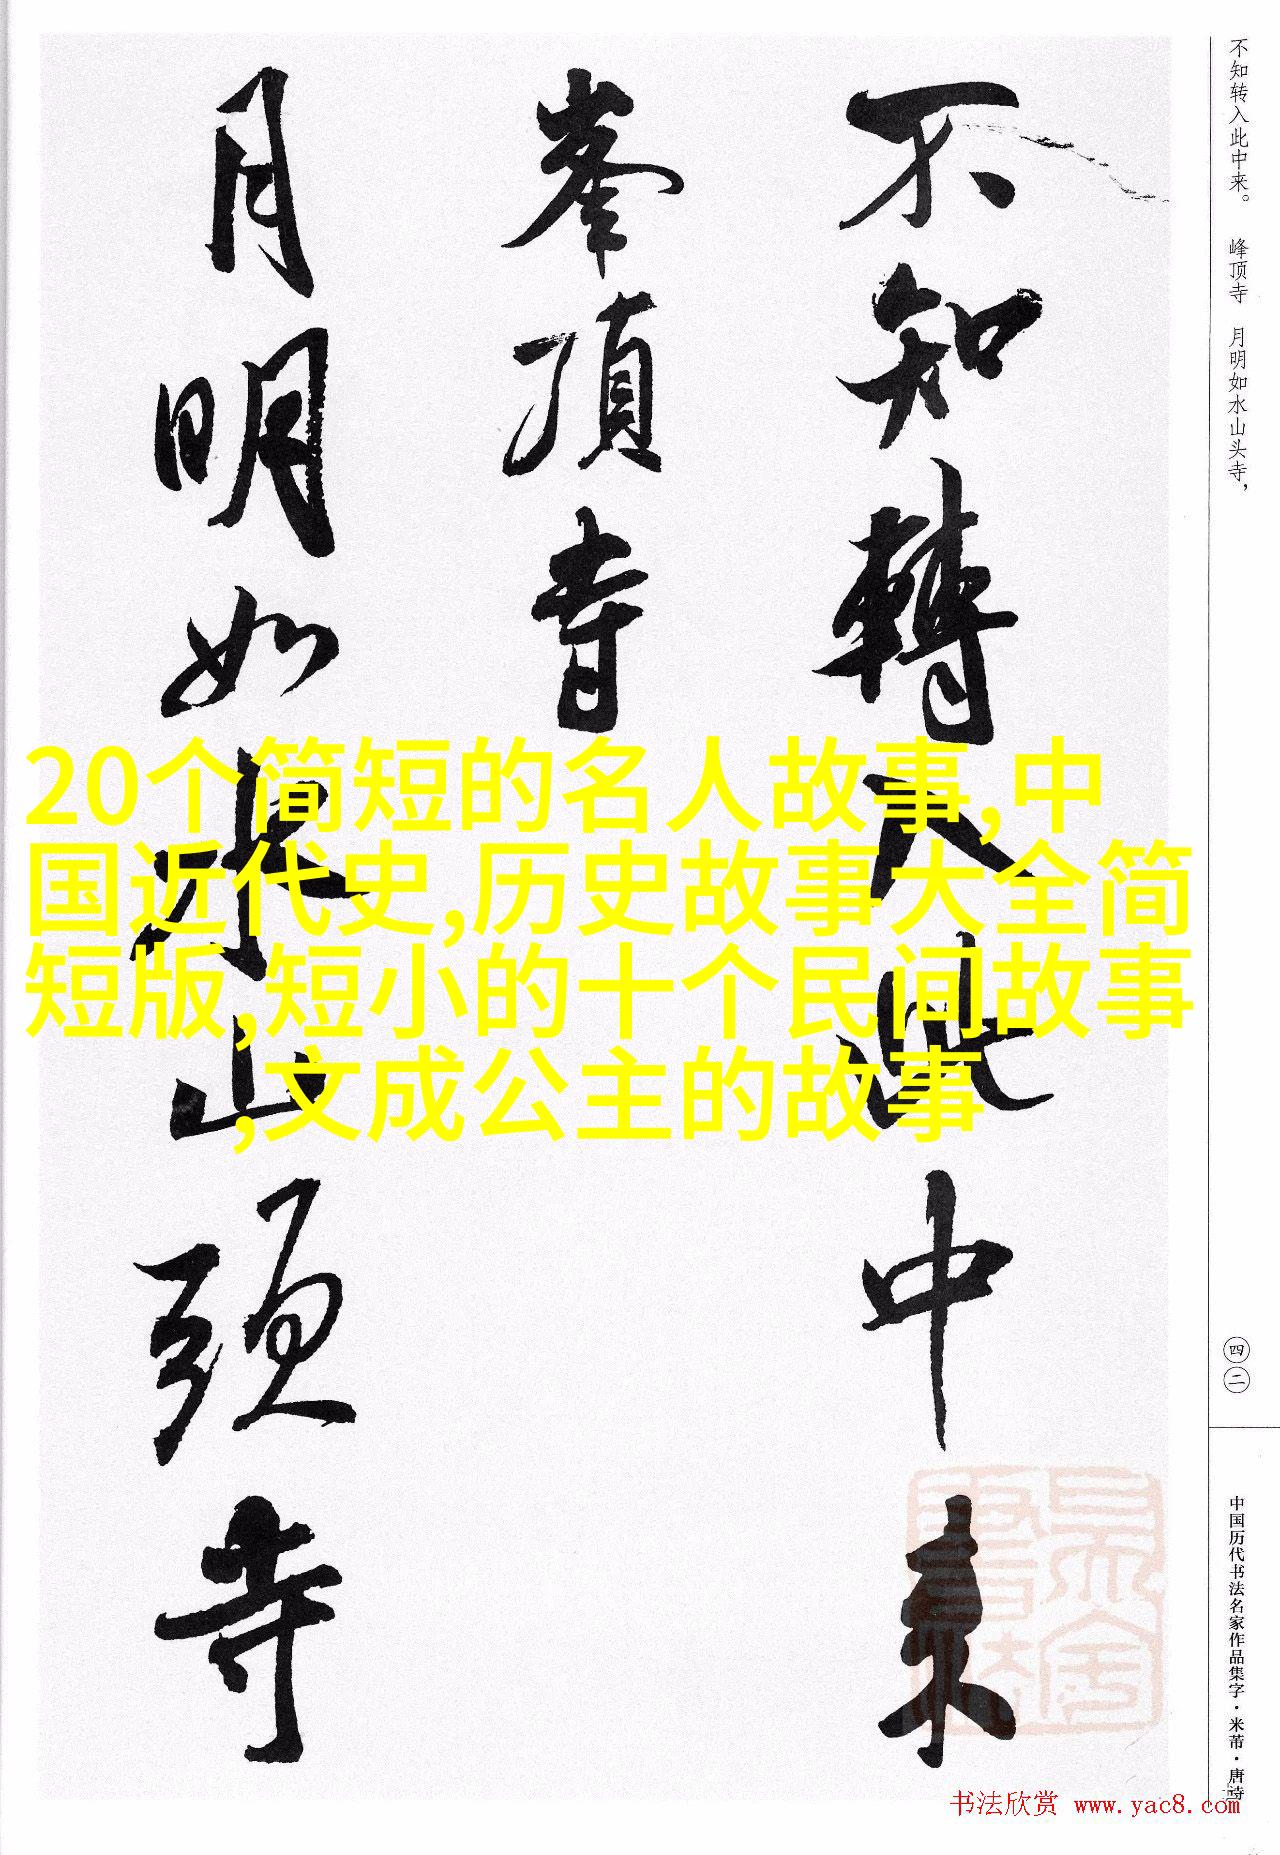 不知轉入此中来
峯頂寺
月明如水山頭寺
20个简短的名人故事,中
国近代史,历史故事大全简
短版,短小的十个民间故事
,文成公主的故事
不知转入此中来。 峰顶寺 月明如水山头寺，
四二
中国历代书法名家作品集字·米芾·唐诗
书法欣赏 www.yac8.com